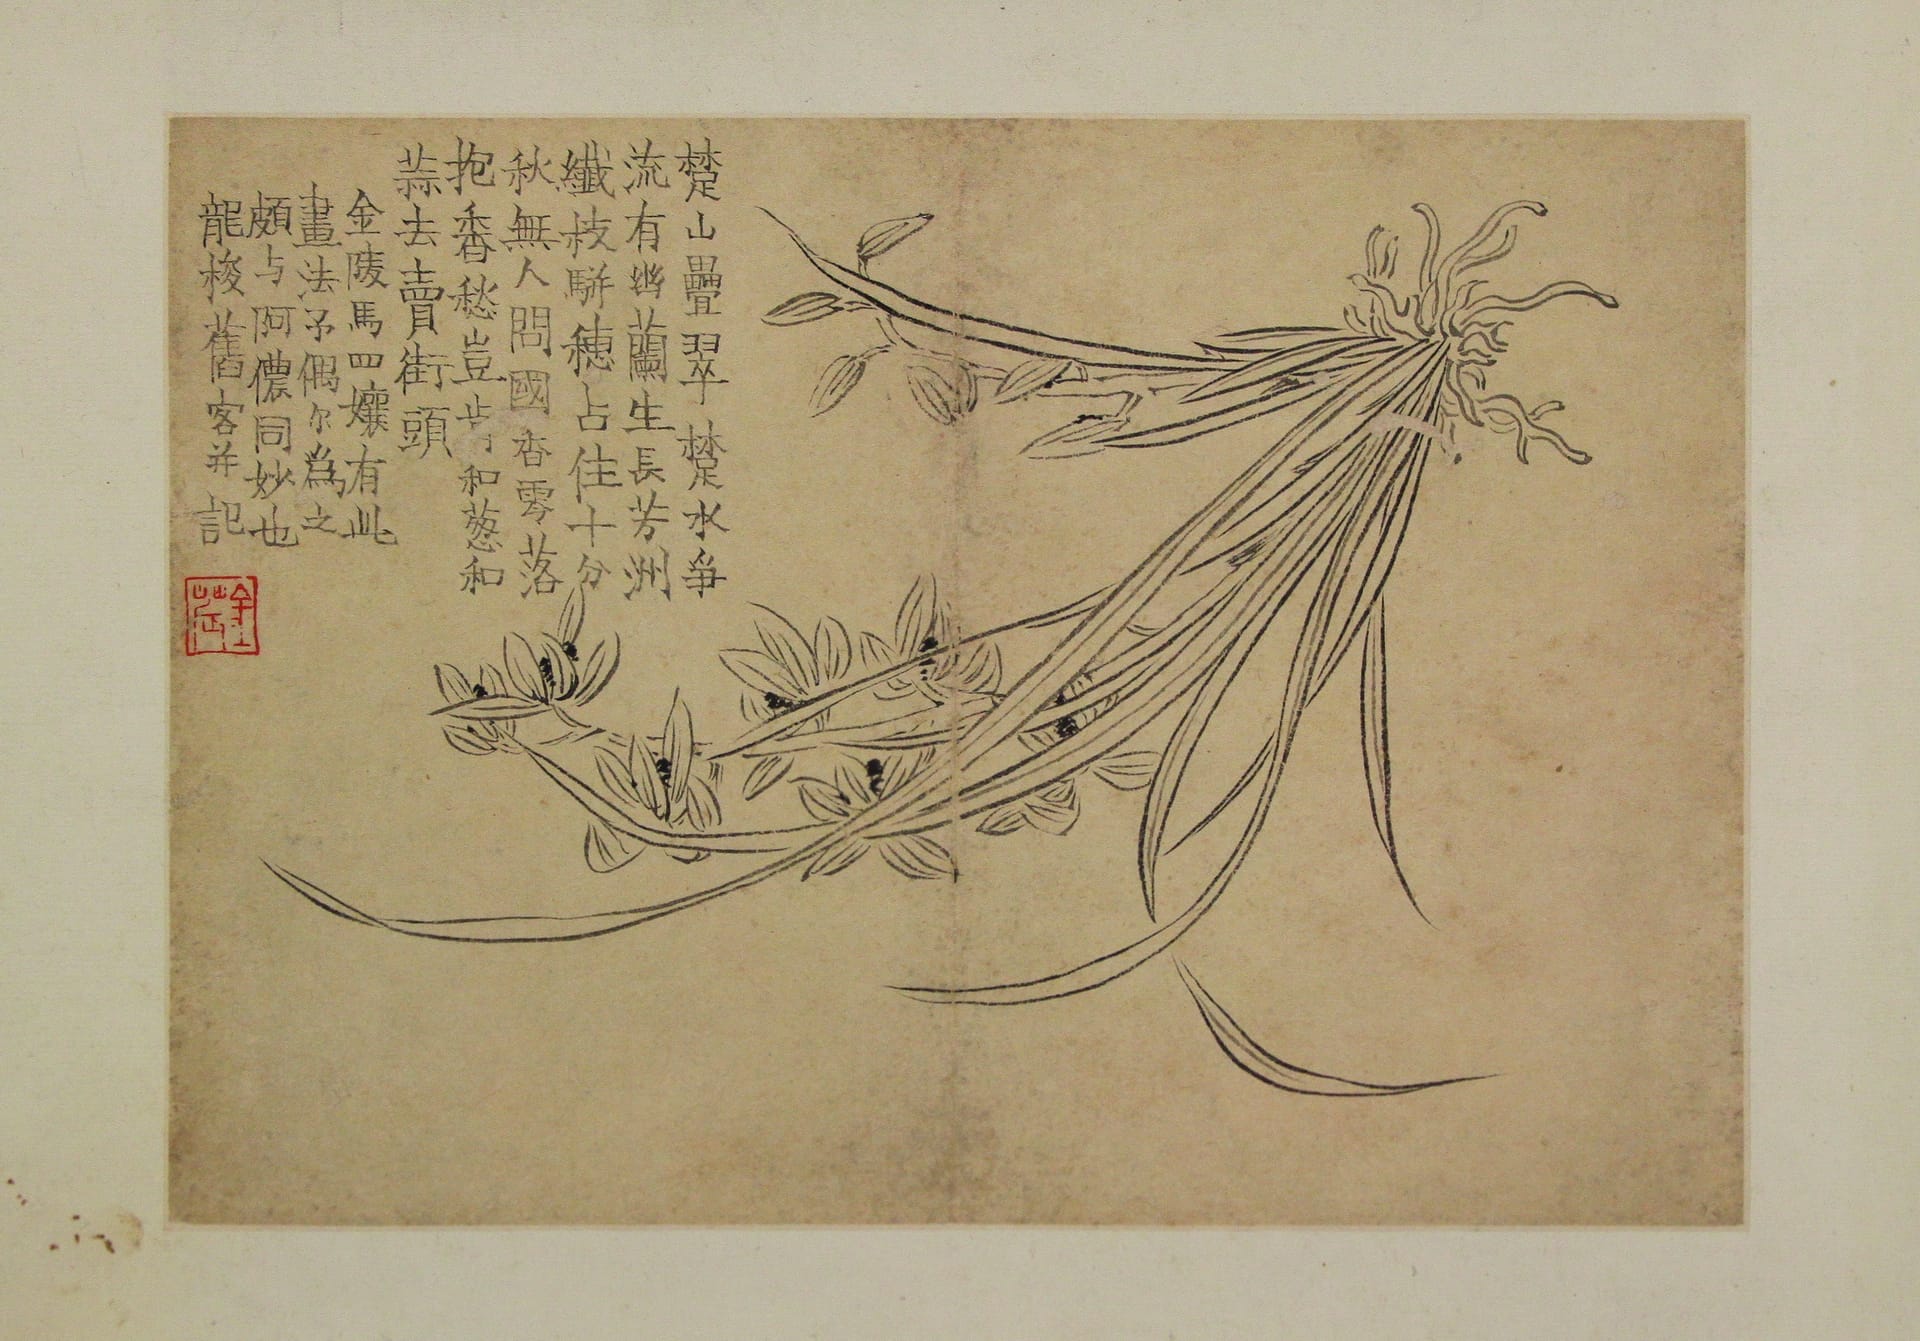 楚山疊翠楚水爭
流有幽蘭生長芳洲
纖枝駢穗占住十分
秋無人問國香零落
抱香愁豈肯和蔥和
蒜去賣街頭
金陵馬四孃有此
畫法予偶尔為之
頗与阿儂同妙也
龍梭舊客并記